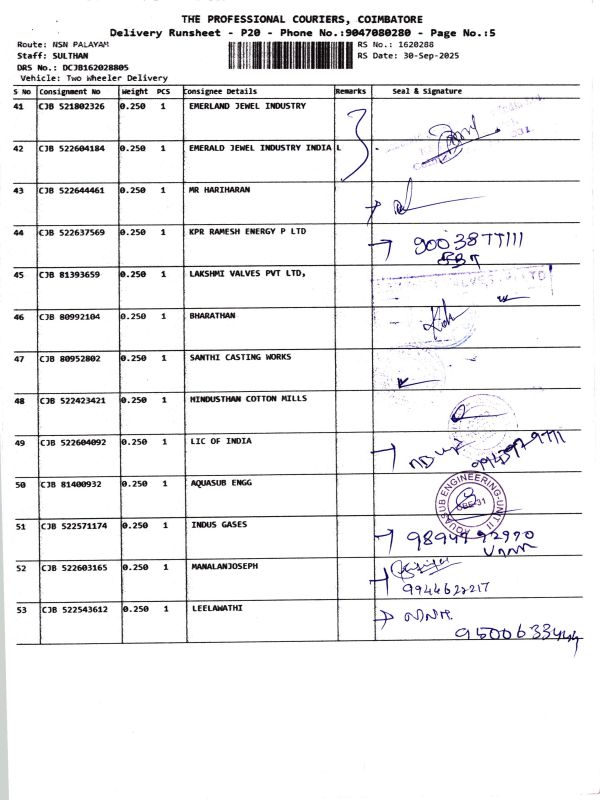 THE PROFESSIONAL COURIERS, COIMBATORE
Delivery Runsheet - P20 - Phone No.:9047080280 - Page No.:5
Route: NSN PALAYAM RS No.: 1620288
Staff: SULTHAN RS Date: 30-Sep-2025
DRS No.: DCJB162028805
Vehicle: Two Wheeler Delivery
S No Consignment No Weight PCS Consignee Details Remarks Seal & Signature
41 CJB 521802326 0.250 1 EMERLAND JEWEL INDUSTRY
42 CJB 522604184 0.250 1 EMERALD JEWEL INDUSTRY INDIA L
43 CJB 522644461 0.250 1 MR HARIHARAN
44 CJB 522637569 0.250 1 KPR RAMESH ENERGY P LTD
45 CJB 81393659 0.250 1 LAKSHMI VALVES PVT LTD,
46 CJB 80992104 0.250 1 BHARATHAN
47 CJB 80952802 0.250 1 SANTHI CASTING WORKS
48 CJB 522423421 0.250 1 HINDUSTHAN COTTON MILLS
49 CJB 522604092 0.250 1 LIC OF INDIA
50 CJB 81400932 0.250 1 AQUASUB ENGG
AQUASUB ENGINEERING-UNIT II
CBE-31
51 CJB 522571174 0.250 1 INDUS GASES
52 CJB 522603165 0.250 1 MANALANJOSEPH
9944622217
53 CJB 522543612 0.250 1 LEELAWATHI
9500633444